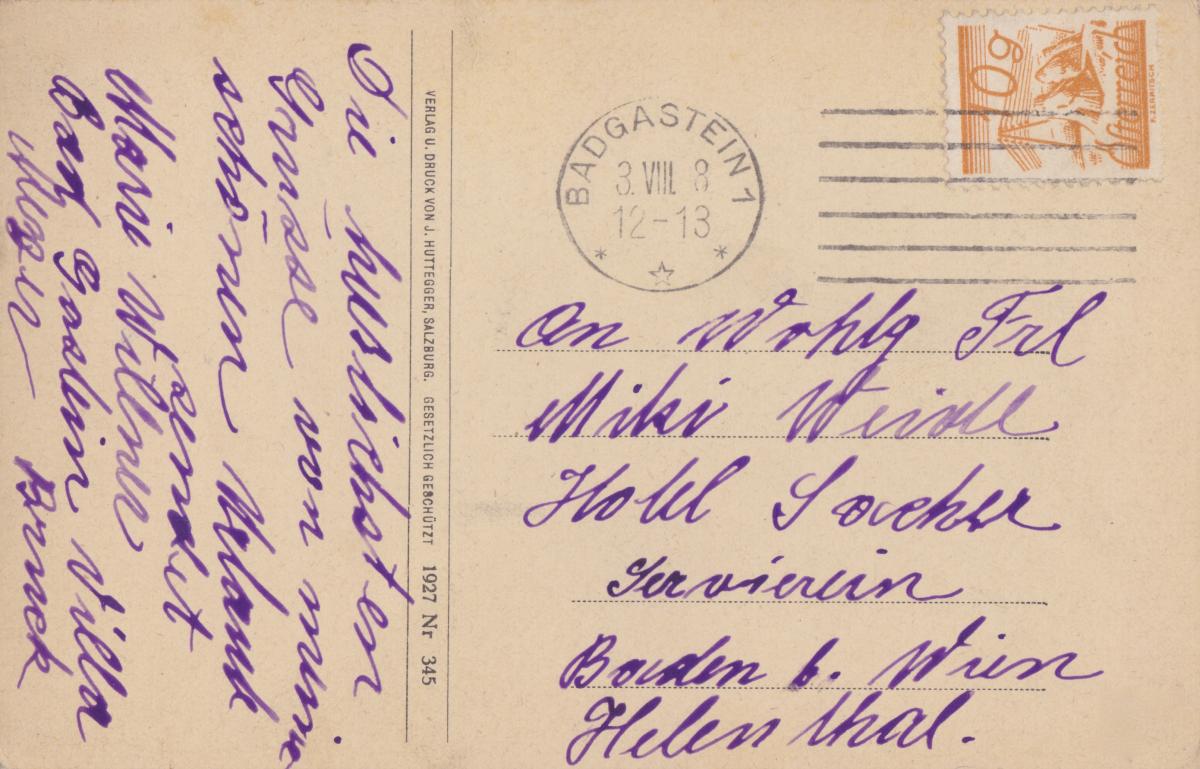 Die herslichsten
Grüsse von meinem
schönen Urlaub
sendet
Mari Wilmer
Bad Gastein Villa
Meyer Bruck
VERLAG U. DRUCK VON J. HUTTEGGER, SALZBURG. GESETZLICH GESCHÜTZT 1927 Nr 345
BADGASTEIN 1
3. VIII. 8
12-13
10 g
An Wohlg Frl
Miki Weidl
Hotel Sacher
Servierein
Baden b. Wien
Helenthal.